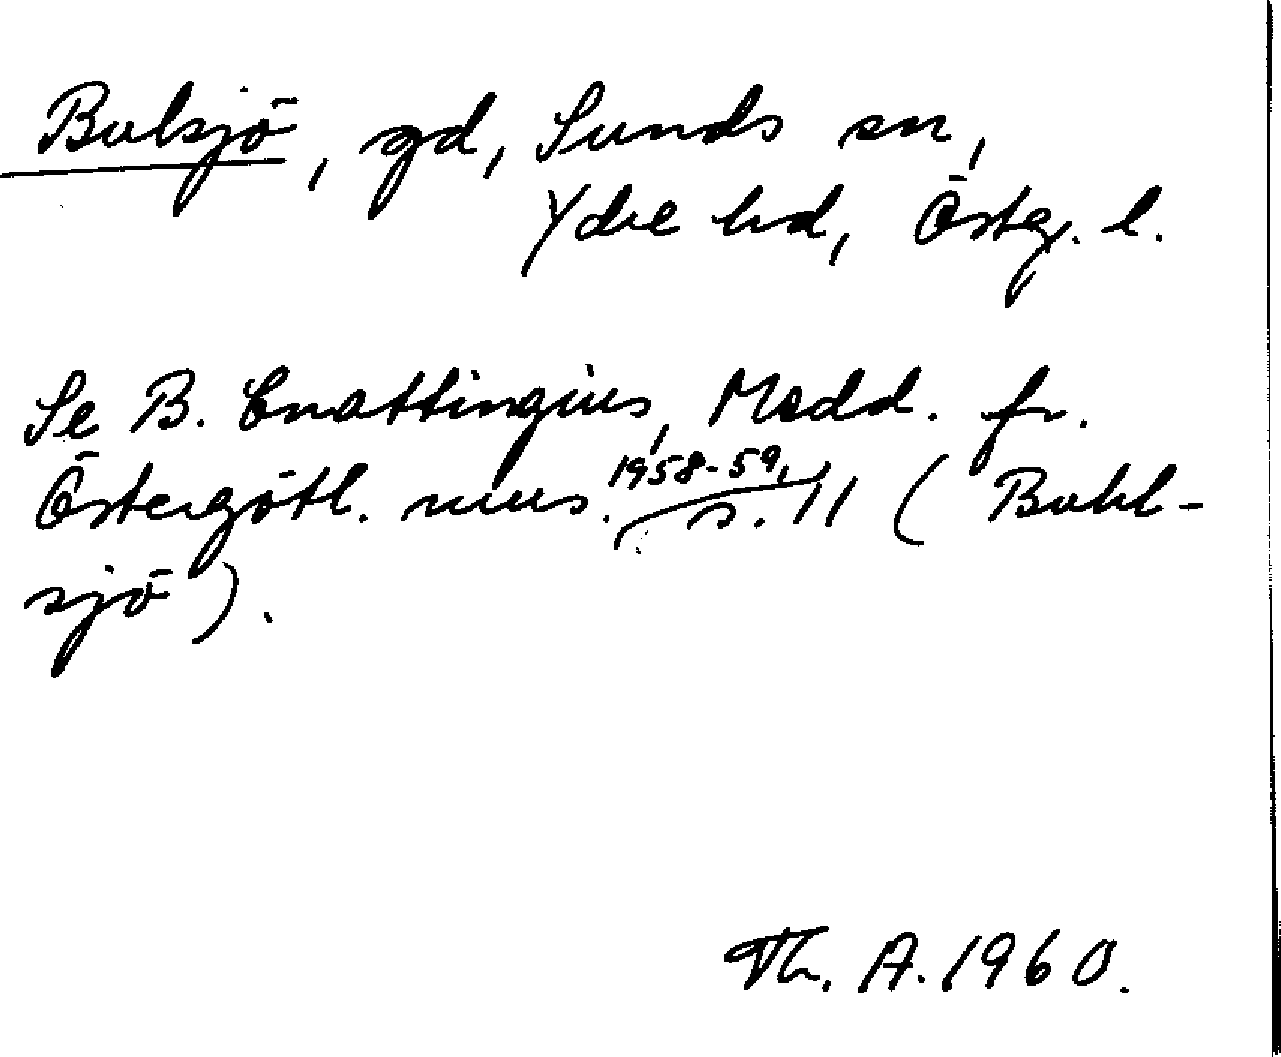 Bulsjö, gd, Sunds sn,
Ydre hd, Österg. l.
Se B. Cnattingius, Medd. fr.
Östergötl. mus. 1958-59, s. 11 (Buhl-
sjö).
Th. A. 1960.